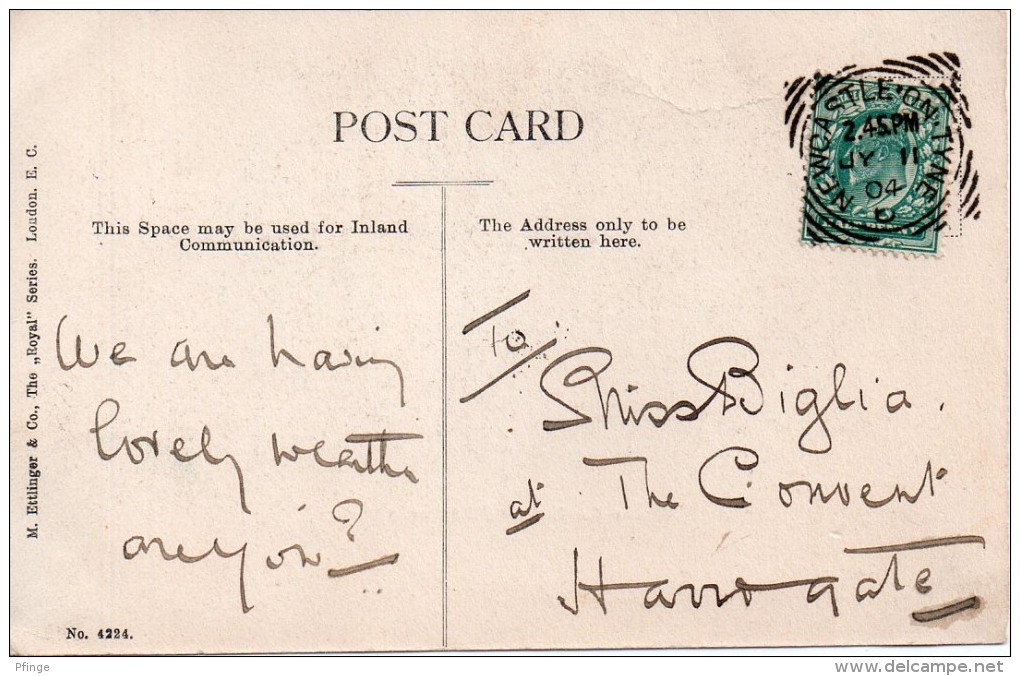 POST CARD
NEWCASTLE·ON·TYNE
2.45PM
JY 11
04
M. Ettlinger & Co., The „Royal" Series. London. E. C.
This Space may be used for Inland
Communication.
The Address only to be
written here.
We are having
lovely weather
are you?
To
Miss Biglia.
at The Convent
Harrogate
No. 4224.
Pfinge
www.delcampe.net